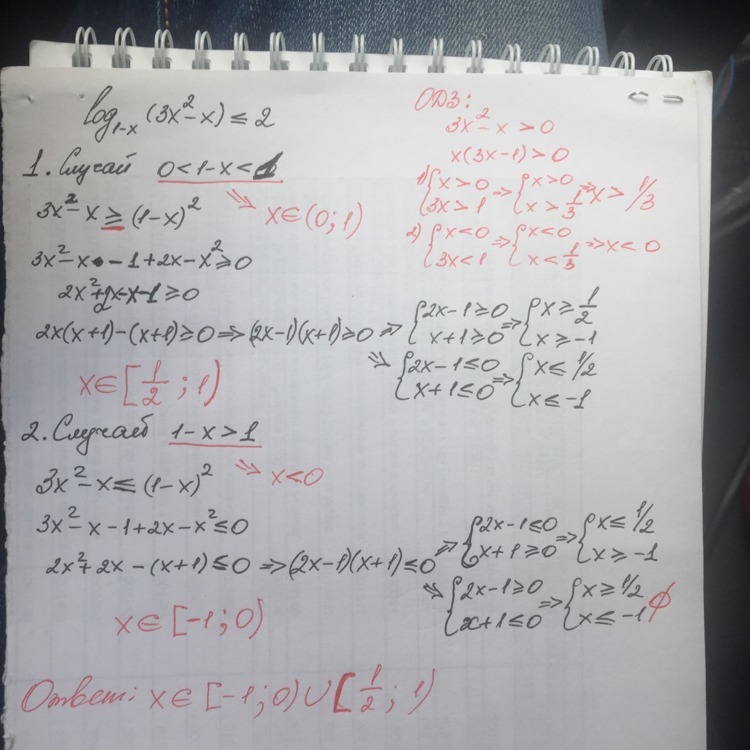 log₁₋ₓ (3x² - x) ≤ 2
ОДЗ:
3x² - x > 0
x(3x-1) > 0
1) {x > 0 ⇒ {x > 0 ⇒ x > 1/3
3x > 1 x > 1/3
2) {x < 0 ⇒ {x < 0 ⇒ x < 0
3x < 1 x < 1/3
1. Случай 0 < 1-x < 1
⇒ x ∈ (0; 1)
3x² - x ≥ (1-x)²
3x² - x - 1 + 2x - x² ≥ 0
2x² + 2x - x - 1 ≥ 0
2x(x+1) - (x+1) ≥ 0 ⇒ (2x-1)(x+1) ≥ 0 ⇒ {2x-1 ≥ 0 ⇒ {x ≥ 1/2
x+1 ≥ 0 x ≥ -1
⇒ {2x-1 ≤ 0 ⇒ {x ≤ 1/2
x+1 ≤ 0 x ≤ -1
x ∈ [1/2 ; 1)
2. Случай 1-x > 1
⇒ x < 0
3x² - x ≤ (1-x)²
3x² - x - 1 + 2x - x² ≤ 0
2x² + 2x - (x+1) ≤ 0 ⇒ (2x-1)(x+1) ≤ 0 ⇒ {2x-1 ≤ 0 ⇒ {x ≤ 1/2
x+1 ≥ 0 x ≥ -1
⇒ {2x-1 ≥ 0 ⇒ {x ≥ 1/2
x+1 ≤ 0 x ≤ -1 ∅
x ∈ [-1 ; 0)
Ответ: x ∈ [-1; 0) ∪ [1/2 ; 1)